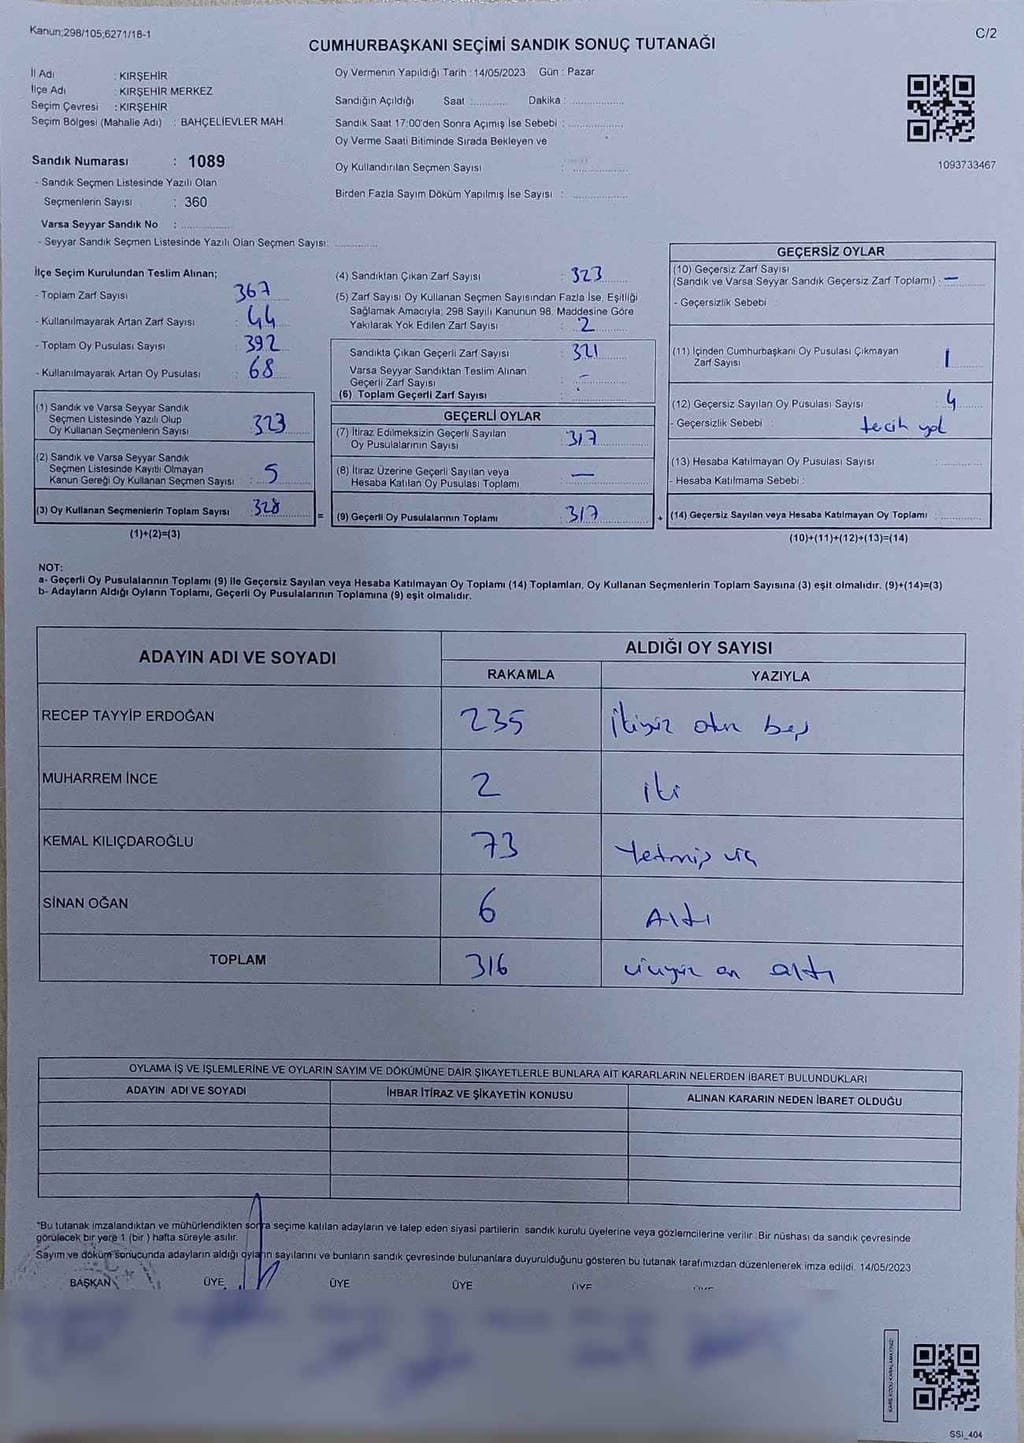 Kanun;298/105;6271/18-1
C/2
CUMHURBAŞKANI SEÇİMİ SANDIK SONUÇ TUTANAĞI
İl Adı : KIRŞEHİR
İlçe Adı : KIRŞEHİR MERKEZ
Seçim Çevresi : KIRŞEHİR
Seçim Bölgesi (Mahalle Adı) : BAHÇELİEVLER MAH
Sandık Numarası : 1089
- Sandık Seçmen Listesinde Yazılı Olan
Seçmenlerin Sayısı : 360
Varsa Seyyar Sandık No :
- Seyyar Sandık Seçmen Listesinde Yazılı Olan Seçmen Sayısı:
Oy Vermenin Yapıldığı Tarih : 14/05/2023 Gün : Pazar
Sandığın Açıldığı Saat Dakika :
Sandık Saat 17:00'den Sonra Açımış İse Sebebi :
Oy Verme Saati Bitiminde Sırada Bekleyen ve
Oy Kullandırılan Seçmen Sayısı :
Birden Fazla Sayım Döküm Yapılmış İse Sayısı :
1093733467
İlçe Seçim Kurulundan Teslim Alınan;
- Toplam Zarf Sayısı : 367
- Kullanılmayarak Artan Zarf Sayısı : 44
- Toplam Oy Pusulası Sayısı : 392
- Kullanılmayarak Artan Oy Pusulası : 68
(1) Sandık ve Varsa Seyyar Sandık
Seçmen Listesinde Yazılı Olup
Oy Kullanan Seçmenlerin Sayısı : 323
(2) Sandık ve Varsa Seyyar Sandık
Seçmen Listesinde Kayıtlı Olmayan
Kanun Gereği Oy Kullanan Seçmen Sayısı : 5
(3) Oy Kullanan Seçmenlerin Toplam Sayısı : 328
(1)+(2)=(3)
(4) Sandıktan Çıkan Zarf Sayısı : 323
(5) Zarf Sayısı Oy Kullanan Seçmen Sayısından Fazla İse, Eşitliği
Sağlamak Amacıyla; 298 Sayılı Kanunun 98. Maddesine Göre
Yakılarak Yok Edilen Zarf Sayısı : 2
Sandıkta Çıkan Geçerli Zarf Sayısı : 321
Varsa Seyyar Sandıktan Teslim Alınan
Geçerli Zarf Sayısı : -
(6) Toplam Geçerli Zarf Sayısı :
GEÇERLİ OYLAR
(7) İtiraz Edilmeksizin Geçerli Sayılan
Oy Pusulalarının Sayısı : 317
(8) İtiraz Üzerine Geçerli Sayılan veya
Hesaba Katılan Oy Pusulası Toplamı : —
= (9) Geçerli Oy Pusulalarının Toplamı : 317
GEÇERSİZ OYLAR
(10) Geçersiz Zarf Sayısı
(Sandık ve Varsa Seyyar Sandık Geçersiz Zarf Toplamı) : —
- Geçersizlik Sebebi :
(11) İçinden Cumhurbaşkanı Oy Pusulası Çıkmayan
Zarf Sayısı : 1
(12) Geçersiz Sayılan Oy Pusulası Sayısı : 4
- Geçersizlik Sebebi :
(13) Hesaba Katılmayan Oy Pusulası Sayısı :
- Hesaba Katılmama Sebebi :
+ (14) Geçersiz Sayılan veya Hesaba Katılmayan Oy Toplamı :
(10)+(11)+(12)+(13)=(14)
NOT:
a- Geçerli Oy Pusulalarının Toplamı (9) ile Geçersiz Sayılan veya Hesaba Katılmayan Oy Toplamı (14) Toplamları, Oy Kullanan Seçmenlerin Toplam Sayısına (3) eşit olmalıdır. (9)+(14)=(3)
b- Adayların Aldığı Oyların Toplamı, Geçerli Oy Pusulalarının Toplamına (9) eşit olmalıdır.
ADAYIN ADI VE SOYADI ALDIĞI OY SAYISI
RAKAMLA YAZIYLA
RECEP TAYYİP ERDOĞAN 235 ikiyüz otuz beş
MUHARREM İNCE 2 iki
KEMAL KILIÇDAROĞLU 73 Yetmiş üç
SİNAN OĞAN 6 Altı
TOPLAM 316 üçyüz on altı
OYLAMA İŞ VE İŞLEMLERİNE VE OYLARIN SAYIM VE DÖKÜMÜNE DAİR ŞİKAYETLERLE BUNLARA AİT KARARLARIN NELERDEN İBARET BULUNDUKLARI
ADAYIN ADI VE SOYADI İHBAR İTİRAZ VE ŞİKAYETİN KONUSU ALINAN KARARIN NEDEN İBARET OLDUĞU
"Bu tutanak imzalandıktan ve mühürlendikten sonra seçime katılan adayların ve talep eden siyasi partilerin sandık kurulu üyelerine veya gözlemcilerine verilir. Bir nüshası da sandık çevresinde
görülecek bir yere 1 (bir ) hafta süreyle asılır.
Sayım ve döküm sonucunda adayların aldığı oyların sayılarını ve bunların sandık çevresinde bulunanlara duyurulduğunu gösteren bu tutanak tarafımızdan düzenlenerek imza edildi. 14/05/2023
BAŞKAN ÜYE ÜYE ÜYE ÜYE
SSI_404